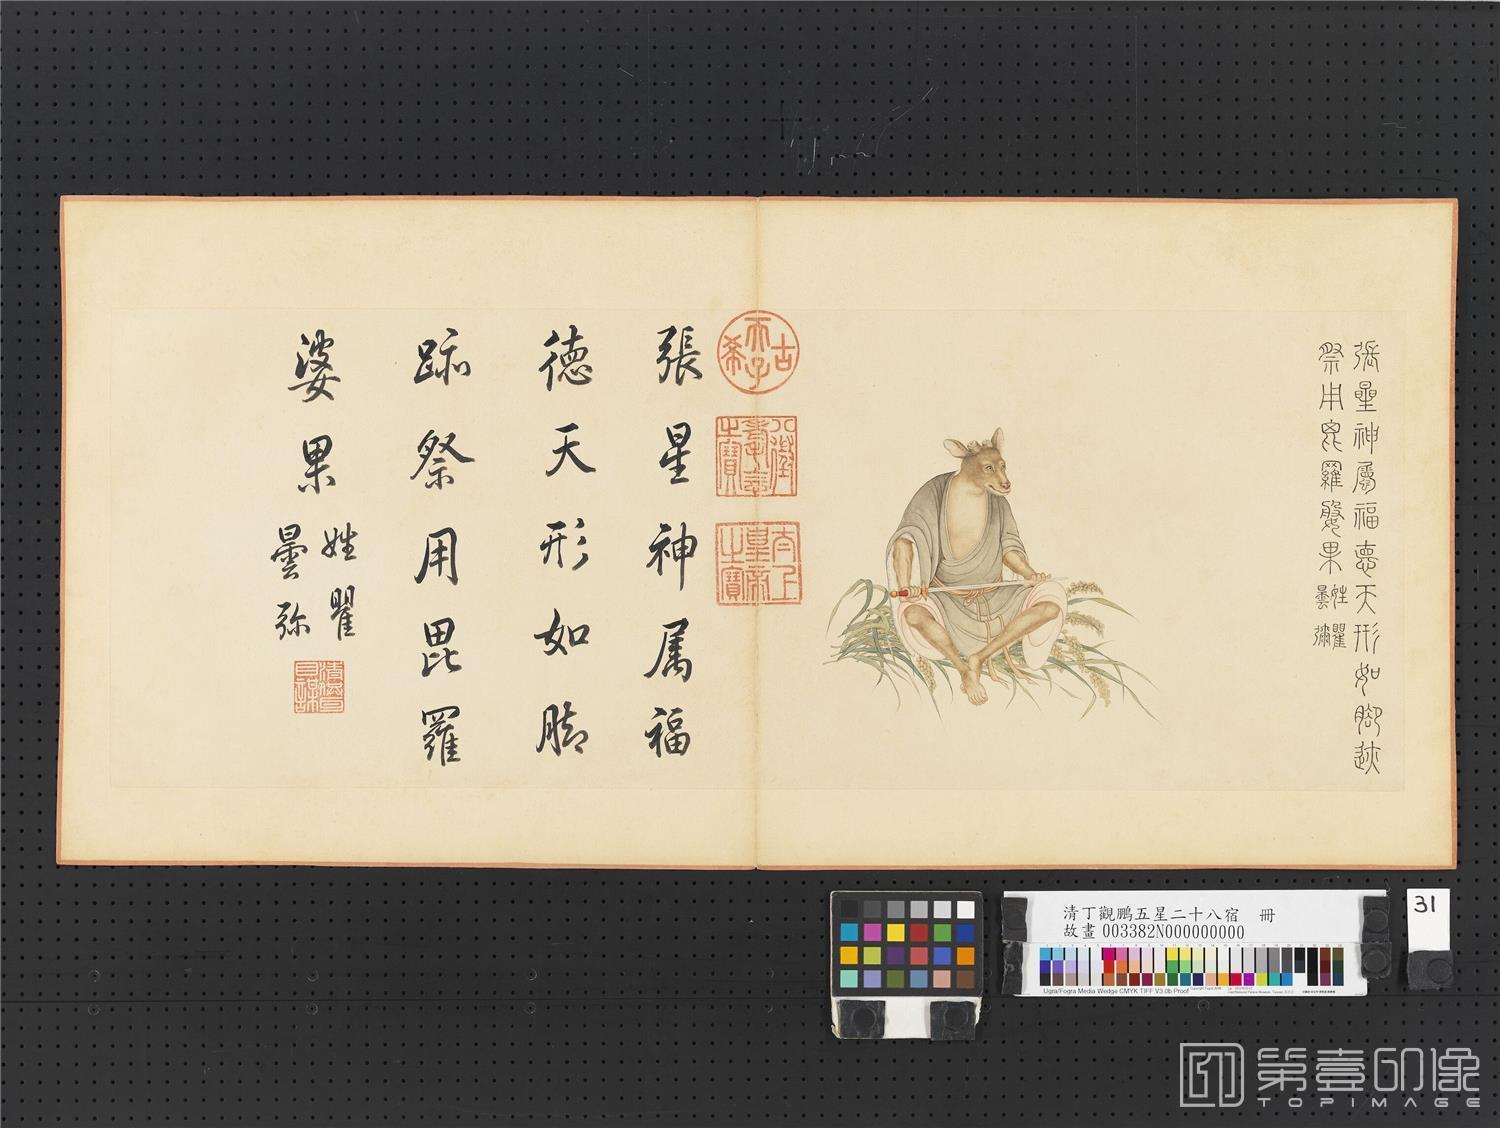 張星神屬福德天形如腳跡
祭用毘羅婆果姓瞿
曇彌
張星神属福
德天形如脚
跡祭用毘羅
婆果姓瞿
曇弥
古希天子
八徵耄念之寶
太上皇帝之寶
清丁觀鵬五星二十八宿 冊
故畫 003382N000000000
31
Ugra/Fogra Media Wedge CMYK TIFF V3.0b Proof
第壹印像
TOPIMAGE